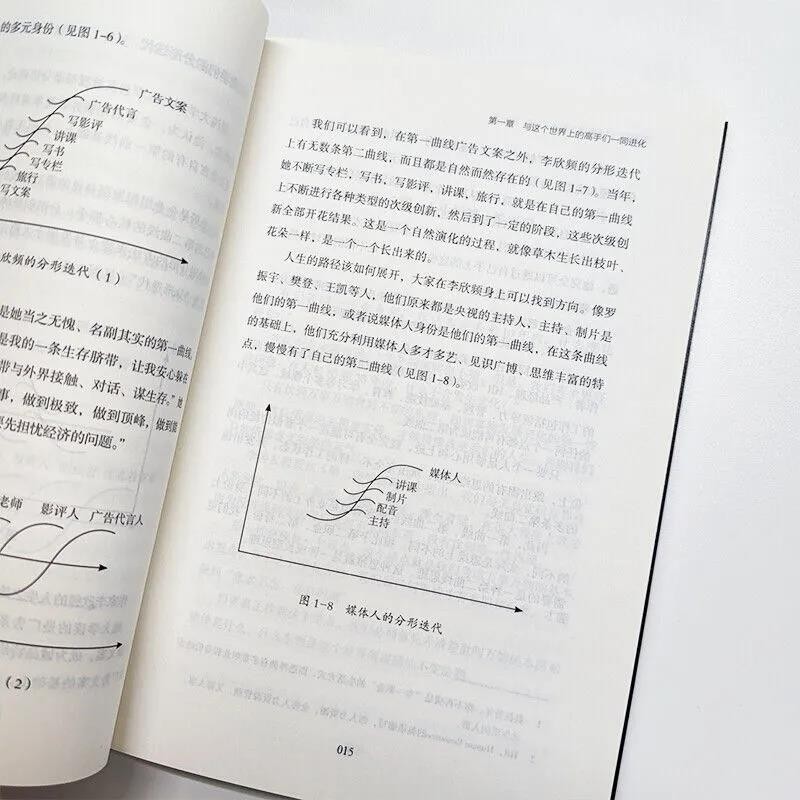 的多元身份（见图1-6）。
广告文案
广告代言
写影评
讲课
写书
写专栏
旅行
写文案
欣频的分形迭代（1）
是她当之无愧、名副其实的第一曲线，
是我的一条生存脐带，让我安心躲在
带与外界接触、对话、谋生存。”她
事，做到极致，做到顶峰，做到能
要先担忧经济的问题。”
老师 影评人 广告代言人
（2）
第一章 与这个世界上的高手们一同进化
我们可以看到，在第一曲线广告文案之外，李欣频的分形迭代
上有无数条第二曲线，而且都是自然而然存在的（见图1-7）。当年，
她不断写专栏，写书，写影评，讲课，旅行，就是在自己的第一曲线
上不断进行各种类型的次级创新，然后到了一定的阶段，这些次级创
新全部开花结果。这是一个自然演化的过程，就像草木生长出枝叶、
花朵一样，是一个一个长出来的。
人生的路径该如何展开，大家在李欣频身上可以找到方向。像罗
振宇、樊登、王凯等人，他们原来都是央视的主持人，主持、制片是
他们的第一曲线，或者说媒体人身份是他们的第一曲线，在这条曲线
的基础上，他们充分利用媒体人多才多艺、见识广博、思维丰富的特
点，慢慢有了自己的第二曲线（见图1-8）。
媒体人
讲课
制片
配音
主持
图1-8 媒体人的分形迭代
015